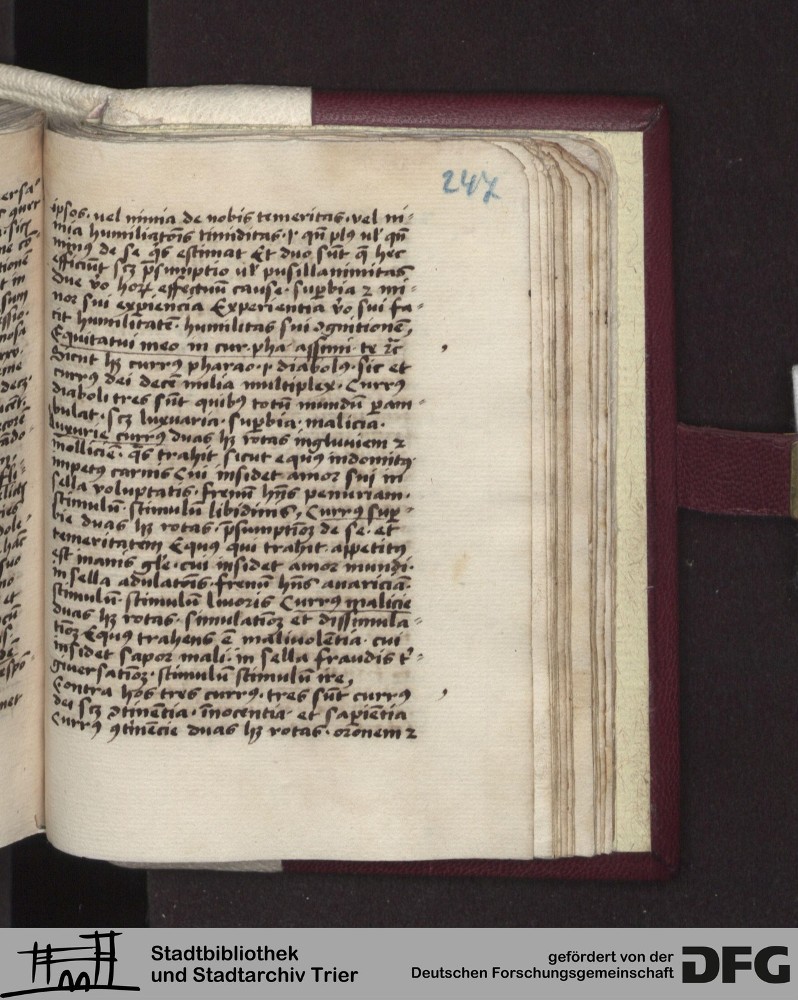 247
ipsos · vel nimia de nobis temeritas · vel ni-
mia humiliatōis timiditas · qn̄ plꝰ ul' qn̄
minꝰ de se qͥs estimat Et duo sūt q̄ hec
efficiūt scꝫ p̄sumptio ul' pusillanimitas
Due v̊o hoꝝ effectuū cause · suꝑbia ⁊ mi-
nor sui exꝑiencia Experientia v̊o sui fa-
cit humilitatē · humilitas sui ꝯgnitionē,
Equitatui meo in cur · pha · assimi · te ⁊c̄
Sicut hꝫ currꝰ pharao · diabolꝰ · sic et
currꝰ dei decē milia multiplex · Currꝰ
diaboli tres sūt quibꝰ totū mūndū ꝑam-
bulat · scꝫ luxuaria · suꝑbia · malicia ·
luxurie currꝰ duas hꝫ rotas ingluuiem ⁊
molliciē · qͣs trahit sicut equꝰ indomitꝰ
impetꝰ carnis Cui insidet amor sui in
sella voluptatis · frenū hn̄s penuriam ·
stimulū · stimulū libidinis, Currꝰ suꝑ-
bie duas hꝫ rotas · p̄sumptiōꝫ de se · et
temeritatem Equꝰ qui trahit appetitꝰ
est inanis gl'e · cui insidet amor mundi ·
in sella adulatōis · frenū hn̄s auariciā
stimulū · stimulū liuoris Currꝰ malicie
duas hꝫ rotas · simulatiōꝫ et dissimula-
tiōꝫ Equꝰ trahens ē maliuolētia · cui
insidet sapor mali · in sella fraudis t'-
giuersatiōꝫ · stimulū stimulū ire,
Contra hos tres currꝰ · tres sūt currꝰ
dei scꝫ ꝯtinētia · īnocentia · et sapiētia
Currꝰ ꝯtinēcie duas hꝫ rotas · orōnem ⁊
Stadtbibliothek
und Stadtarchiv Trier
gefördert von der
Deutschen Forschungsgemeinschaft
DFG